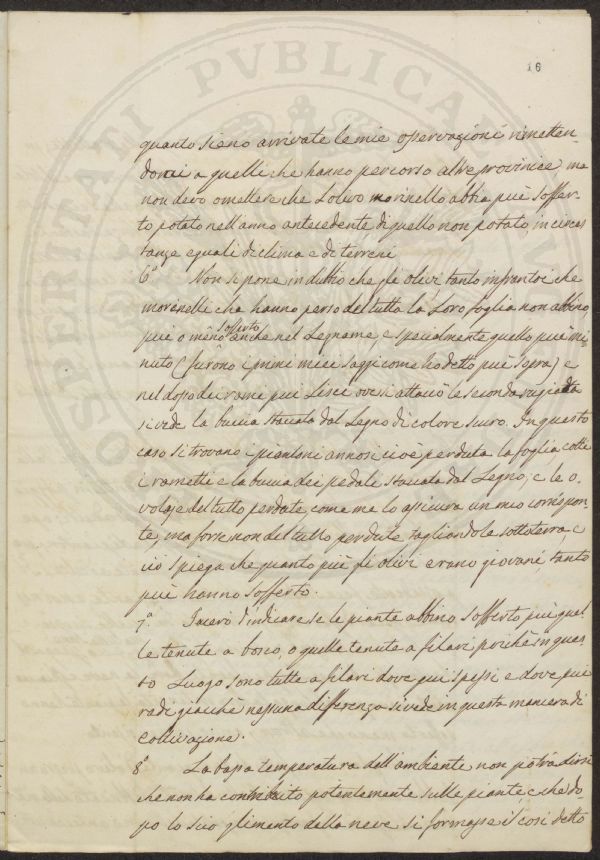 16
quanto sieno arrivate le mie osservazioni rimetten-
domi a quelli che hanno percorso altre provincie, ma
non devo omettere che l'olivo morinello abbia più soffer-
to potato nell'anno antecedente di quello non potato, in circos
tanze eguali di clima e di terreni
6° Non si pone in dubbio che gli olivi tanto infrantoi che
morinelli che hanno perso del tutto la loro foglia non abbino
più o meno sofferto anche nel legname, e specialmente quello più mi
nuto (furono i primi miei saggi come ho detto più sopra) e
nel dopo dei rami più lisci ove si attaccò la seconda rugiada
si vede la buccia staccata dal legno di colore scuro. In questo
caso si trovano i piantoni annosi cioè perduta la foglia colti
i rametti e la buccia dei pedali staccata dal legno, e le o-
volaje del tutto perdute come me lo assicura un mio corrispon
te, ma forse non del tutto perdute tagliandole sottoterra, e
ciò spiega che quanto più gli olivi erano giovani, tanto
più hanno sofferto.
7° Tacerò l'indicare se le piante abbino sofferto più quel
le tenute a bosco, o quelle tenute a filari perchè in ques
to luogo sono tutte a filari dove più spessi e dove più
radi giacchè nessuna differenza si vede in questa maniera di
coltivazione.
8° La bassa temperatura dell'ambiente non potrà dirsi
che non ha contribuito potentemente sulle piante, e che do
po lo scioglimento della neve si formasse il così detto
PROSPERITATI PVBLICAE